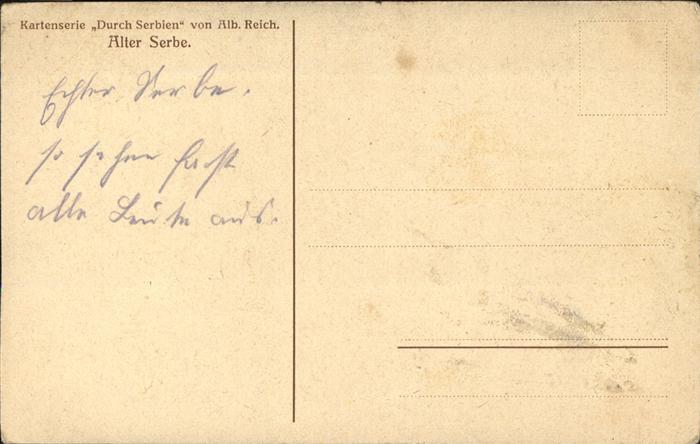 Kartenserie „Durch Serbien“ von Alb. Reich.
Alter Serbe.
Echter Serbe.
so sehen fast
alle Leute aus.